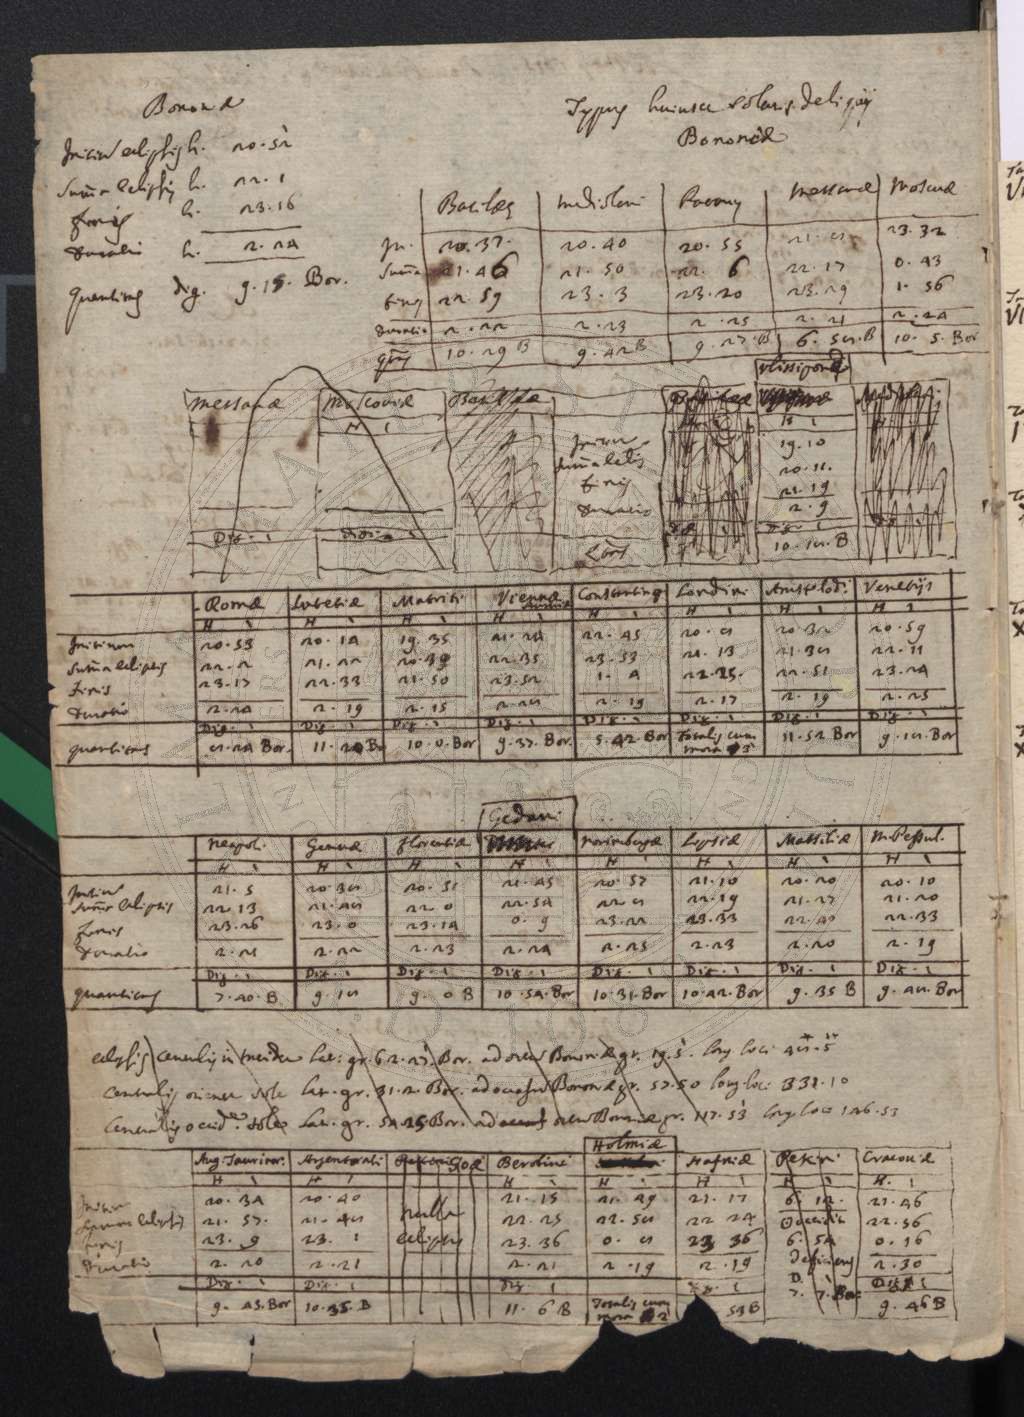 Bononiæ
Typus huiusce solaris deliquij
Bononiæ
Initiū eclipsis h. 20.52
Sum̄a eclipsis h. 22.1
finis h. 23.16
Duratio h. 2.24
Quantitas dig. 9.15. Bor.
Basileæ Mediolani Messanæ Moscuæ
In. 20.37. 20.40 20.55 21.8 23.32
Sum̄a 21.46 21.50 22.6 22.17 0.43
finis 22.59 23.3 23.20 23.29 1.56
Duratio 2.22 2.23 2.25 2.21 2.24
10.29 B 9.42 B 9.27.B 6.58.B 10.5.Bor
Ulissipone
Messanæ Moscoviæ
H I H I
Initium 19.10
Sum̄a eclis 20.11.
finis 21.19
Duratio 2.9
Dig. I Digi I Dig. I
10.18.B
Romæ Lutetiæ Matriti Viennæ Austriæ Constantinop Londini Amstelod. Venetijs
H I H I H I H I H I H I H I H I
Initium 20.53 20.14 19.35 21.24 22.45 20.8 20.32 20.59
Sum̄a eclipsis 22.2 21.22 20.39 22.35 23.53 21.13 21.38 22.11
finis 23.17 22.33 21.50 23.52 1.4 22.25. 22.51 23.24
Duratio 2.24 2.19 2.15 2.28 2.19 2.17 2.19 2.25
Dig. I Dig I Dig. I Dig. I Dig. I Dig. I Dig. I Dig. I
quantitas 8.24 Bor. 11.20 Bo 10.0.Bor 9.37.Bor. 5.42.Bor Totalis cum mora 3' 11.52 Bor 9.18.Bor
Gedani
Neapoli Genuæ Florentiæ Norimbergæ Lipsiæ Massiliæ Mōspessul.
H I H I H I H I H I H I H I H I
Initiū 21.5 20.38 20.51 21.45 20.57 21.10 20.20 20.10
Sum̄a eclipsis 22.13 21.48 22.0 22.54 22.8 22.19 21.27 21.20
Finis 23.26 23.0 23.14 0.9 23.22 23.33 22.40 22.33
Duratio 2.21 2.22 2.23 2.24 2.25 2.23 2.20 2.19
Dig. I Dig. I Dig. I Dig. I Dig. I Dig. I Dig. I Dig. I
quantitas 7.40.B 9.18 9.0 B 10.54.Bor 10.31.Bor 10.42.Bor 9.35 B 9.48.Bor
eclipsis centralis in meridie lat: gr. 62.27. Bor. ad ortū Bononiæ gr. 19.5. long. loci 48.5
centralis oriente sole lat. gr. 31.2.Bor. ad occasū Bononiæ gr. 57.50 long. loci 331.10
Centralis occid.te sole lat. gr. 54.25.Bor. ad ortū Bononiæ gr. 117.53 long. loci 146.53
Holmiæ
Aug. Taurinor. Argentorati Goæ Berolini Hafniæ Pekini Cracoviæ
H I H I H I H I H I H I H. I
Initium 20.34 20.40 nulla 21.15 21.49 21.17 6.12. 21.46
Summa eclipsis 21.57. 21.48 eclipsis 22.25 22.58 22 24 Occidit 22.56
finis 23.9 23.1 23.36 0.8 23 36 6.54 0.16
Duratio 2.20 2.21 2.21 2.19 2.19 deficiens 2.30
Dig. I Dig. I Dig I Dig. I D. I Dig. I
9.43.Bor 10.35.B 11.6 B Totalis cum mora 2' 59 B 7.7.Bor 9.46 B